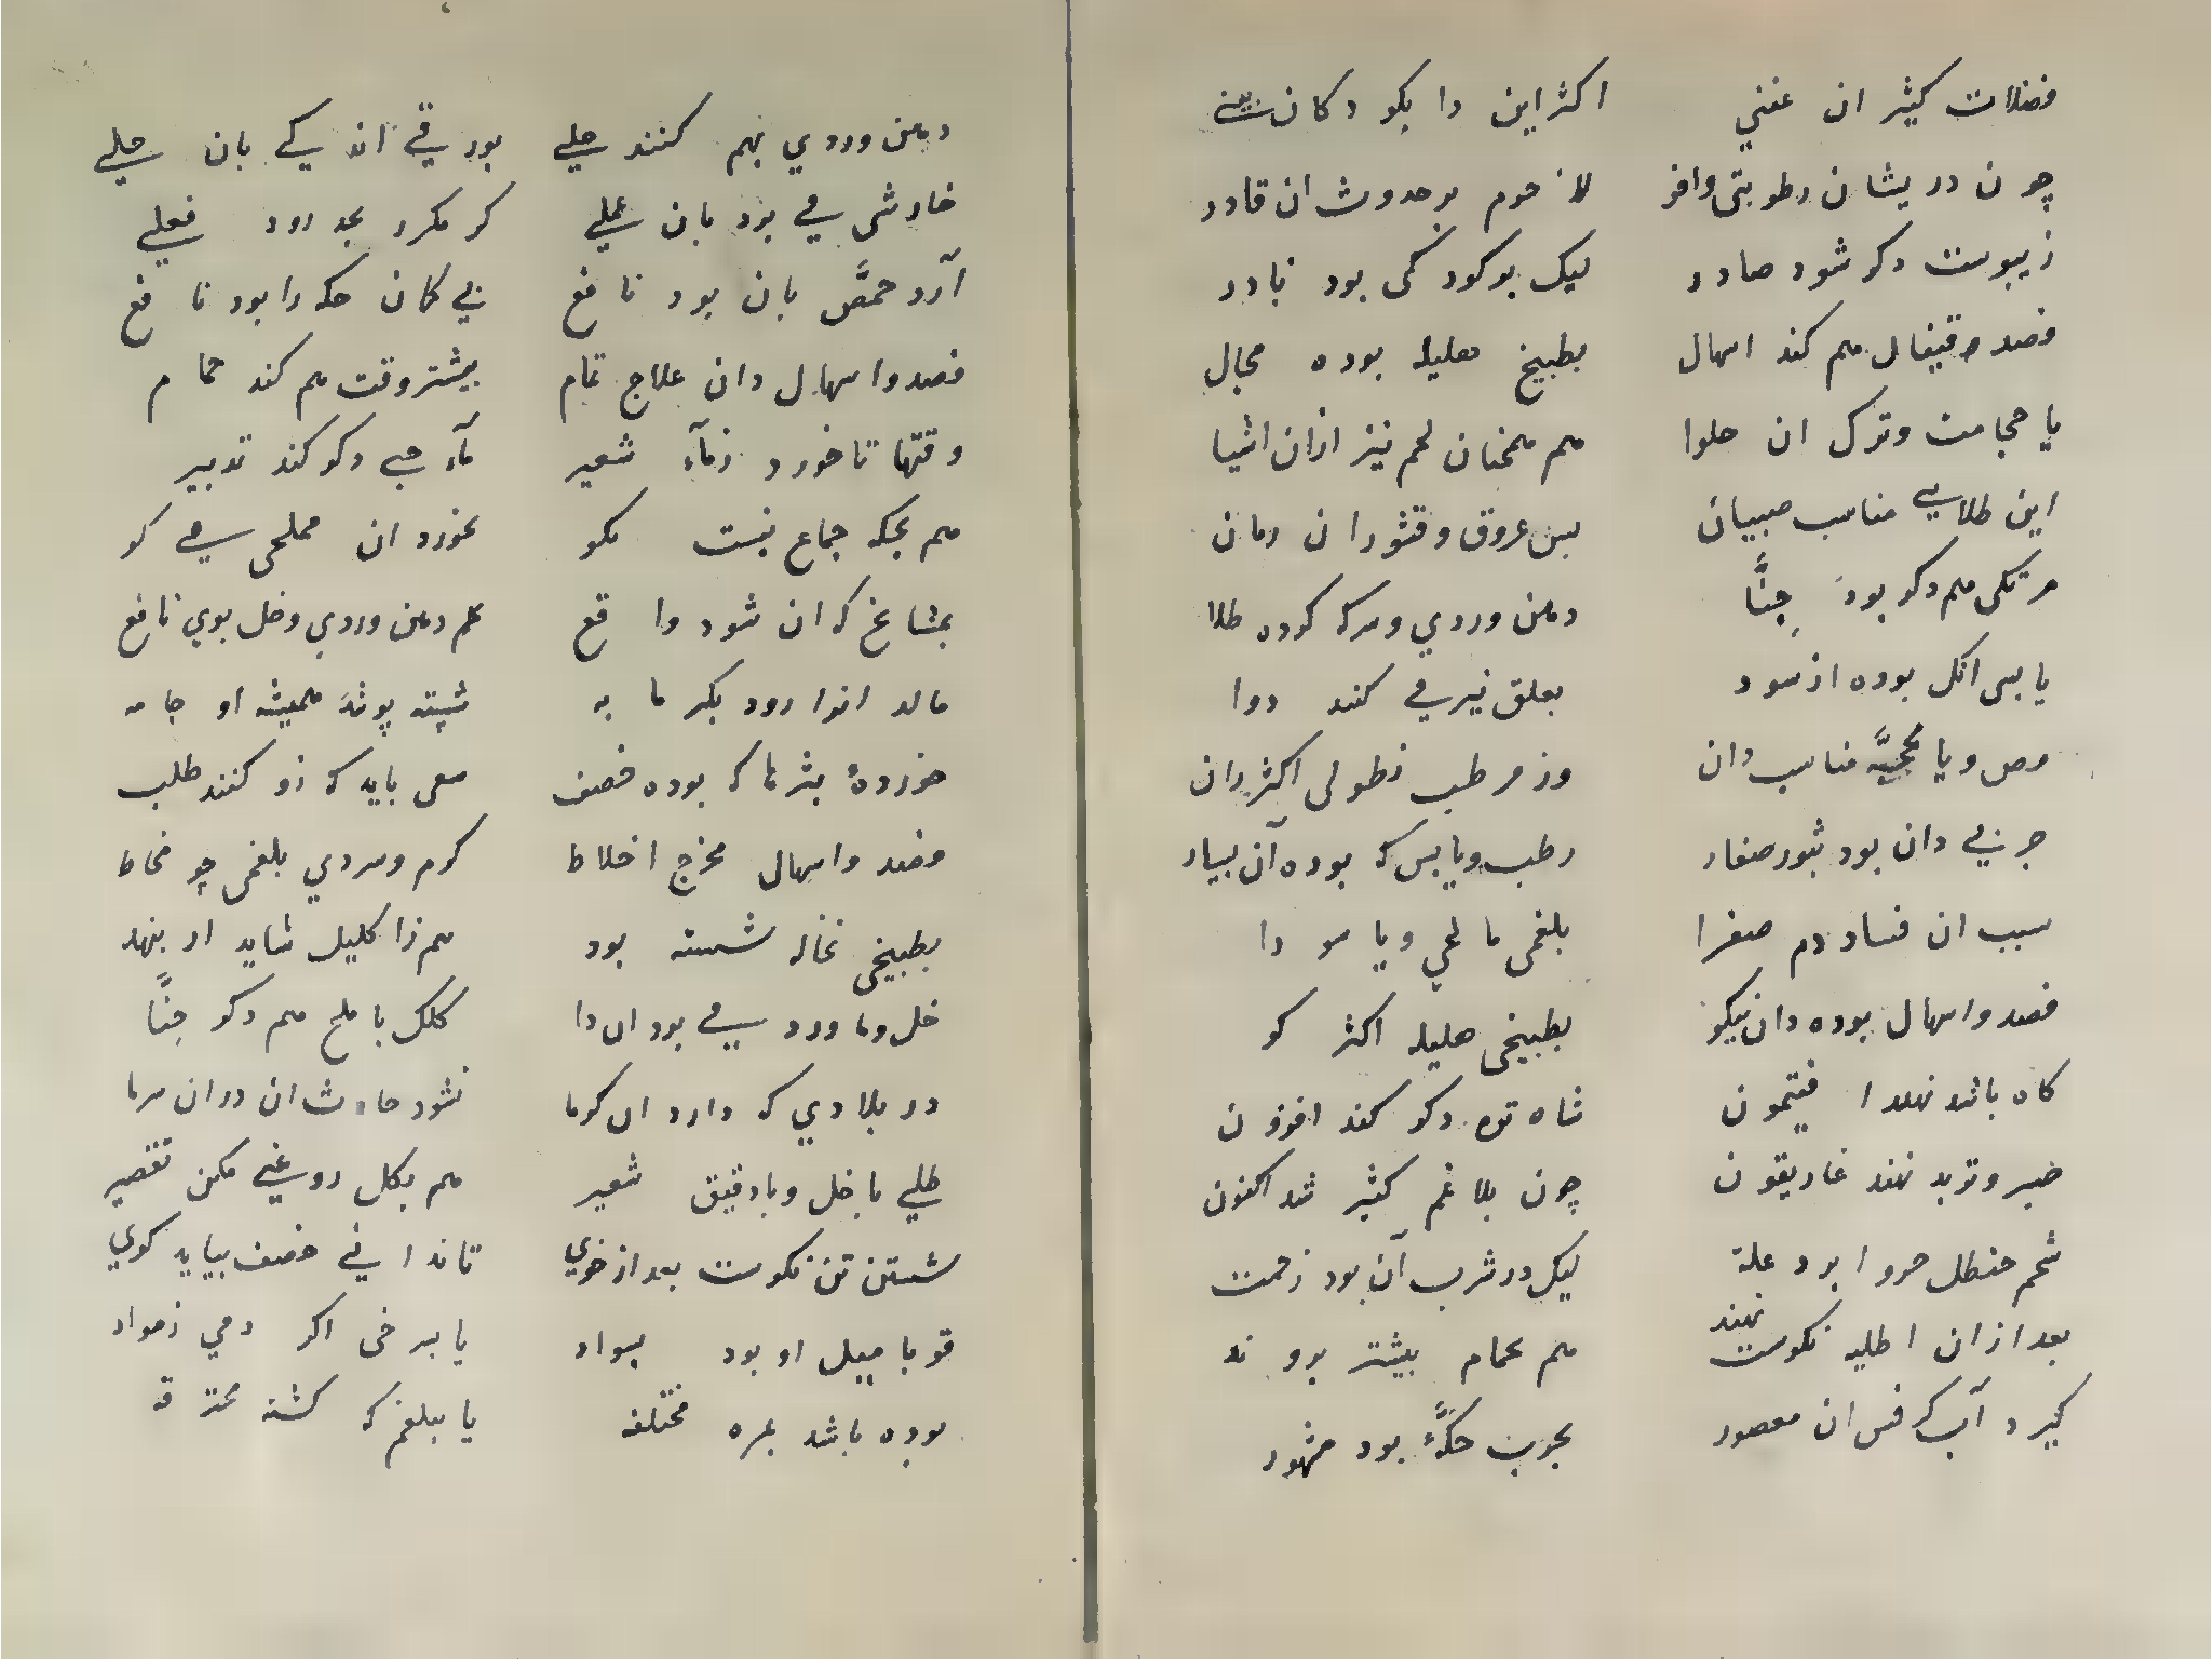 فضلات کثیر ان عنني اکثر این را بکو دکان
چون در یشان رطوبتی وافر لاجرم بر حدوث ان قادر
ز یبوست دکر شود صادر لیک بر کودکی بود نادر
فصد قیفال هم کند اسهال بطبیخ هلیله بوده مجال
یا حجامت وترک ان حلوا هم همچنان لحم نیز ازان اشیا
این طلایي مناسب صبیان بس عروق وقشور ان رمان
مرتکی هم دکر بود حنّا دهن وردي وسرکه کرده طلا
یا بس انکل بوده از سود بعلق نیز مي کند دوا
مص ویا محجمهٔ مناسب دان وز مرطب نطولی اکثر دان
جربي دان بود بثور صغار رطب ویابس که بوده آن بسیار
سبب ان فساد دم صفرا بلغمی مالحي ویا سودا
فصد واسهال بوده دان نیکو بطبیخی هلیله اکثر کو
کاه باشد نهند افتیمون شاه تره دکر کند افزون
صبر وتربد نهند غاریقون چون بلاغم کثیر شد اکنون
شحم حنظل مرو ا برد علة لیک در شرب آن بود زحمت
بعد ازان اطلیه نکوست نهند هم بحمام بیشتر بروند
کیرد آب کرفس ان معصور بجرب حکّهٔ بود مشهور
دهن وردي بهم کنند جلي بورقي اندکي بان حلي
خارشی مي بود بان عملي کر مکرر بجد رود فعلي
آرد حمّص بان بود نافع بي کمان حکه را بود نافع
فصد واسهال دان علاج تمام بیشتر وقت هم کند حمام
وقتها تا خورد زمآء شعیر مآء جبي دکر کند تدبیر
هم بحکه جماع نیست مکو نخورد ان مملحی مي کو
بمشایخ که ان شود واقع هم دهن وردي وخل بوي نافع
مالد انرا رود بکرمابه شسته پوشد همیشه او جامه
خوردهٔ بثرها که بوده خصف سعی باید که زو کنند طلب
فصد واسهال مخرج اخلاط کرم وسردي بلغمی چو مخاط
بطبیخی نخاله شسته بود هم زاکلیل شاید ار بنهد
خل وماورد مي بود ان دا کلک با ملح هم دکر حنّا
در بلادي که دارد ان کرما نشود حادث ان دران سرما
طلي با خل وبا دقیق شعیر هم بکل روغني مکن تقصیر
شستن تن نکوست بعد از خوي تا ندا ني خصف بیاید کوي
قوبا میل او بود بسواد یا بسرخی اکر دمي زمواد
بوده باشد بمره مختلفه یا ببلغم که کشته محترقه